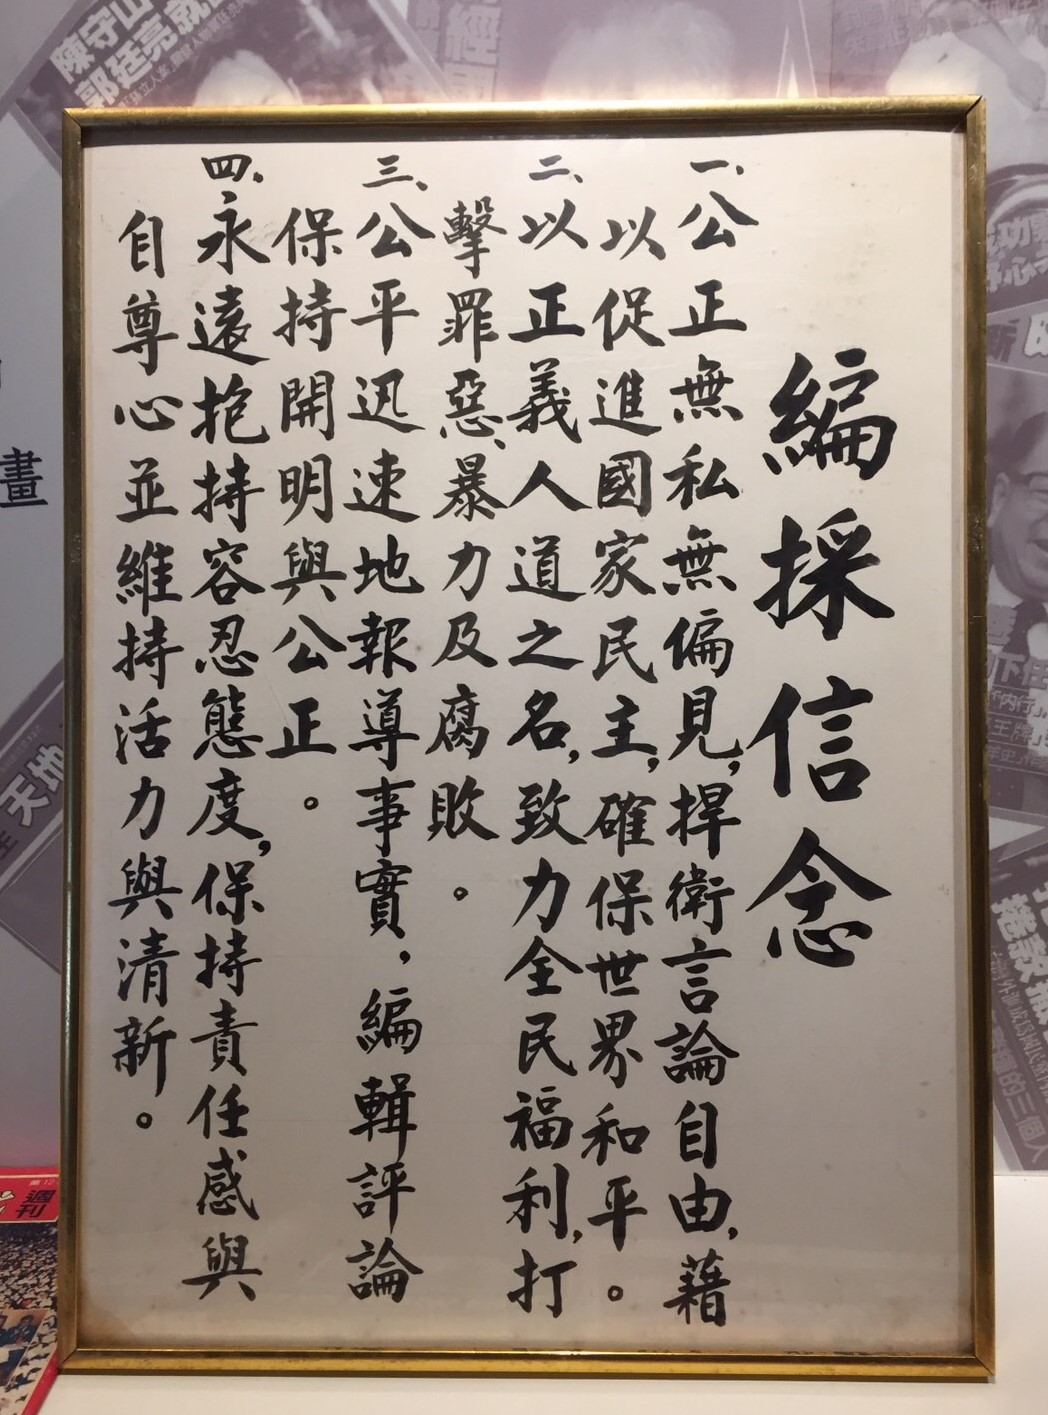 編採信念
一、公正無私無偏見，捍衛言論自由，藉
以促進國家民主，確保世界和平。
二、以正義人道之名，致力全民福利，打
擊罪惡、暴力及腐敗。
三、公平迅速地報導事實，編輯評論
保持開明與公正。
四、永遠抱持容忍態度，保持責任感與
自尊心並維持活力與清新。
陳守山
畫
天地
週刊
的三個人